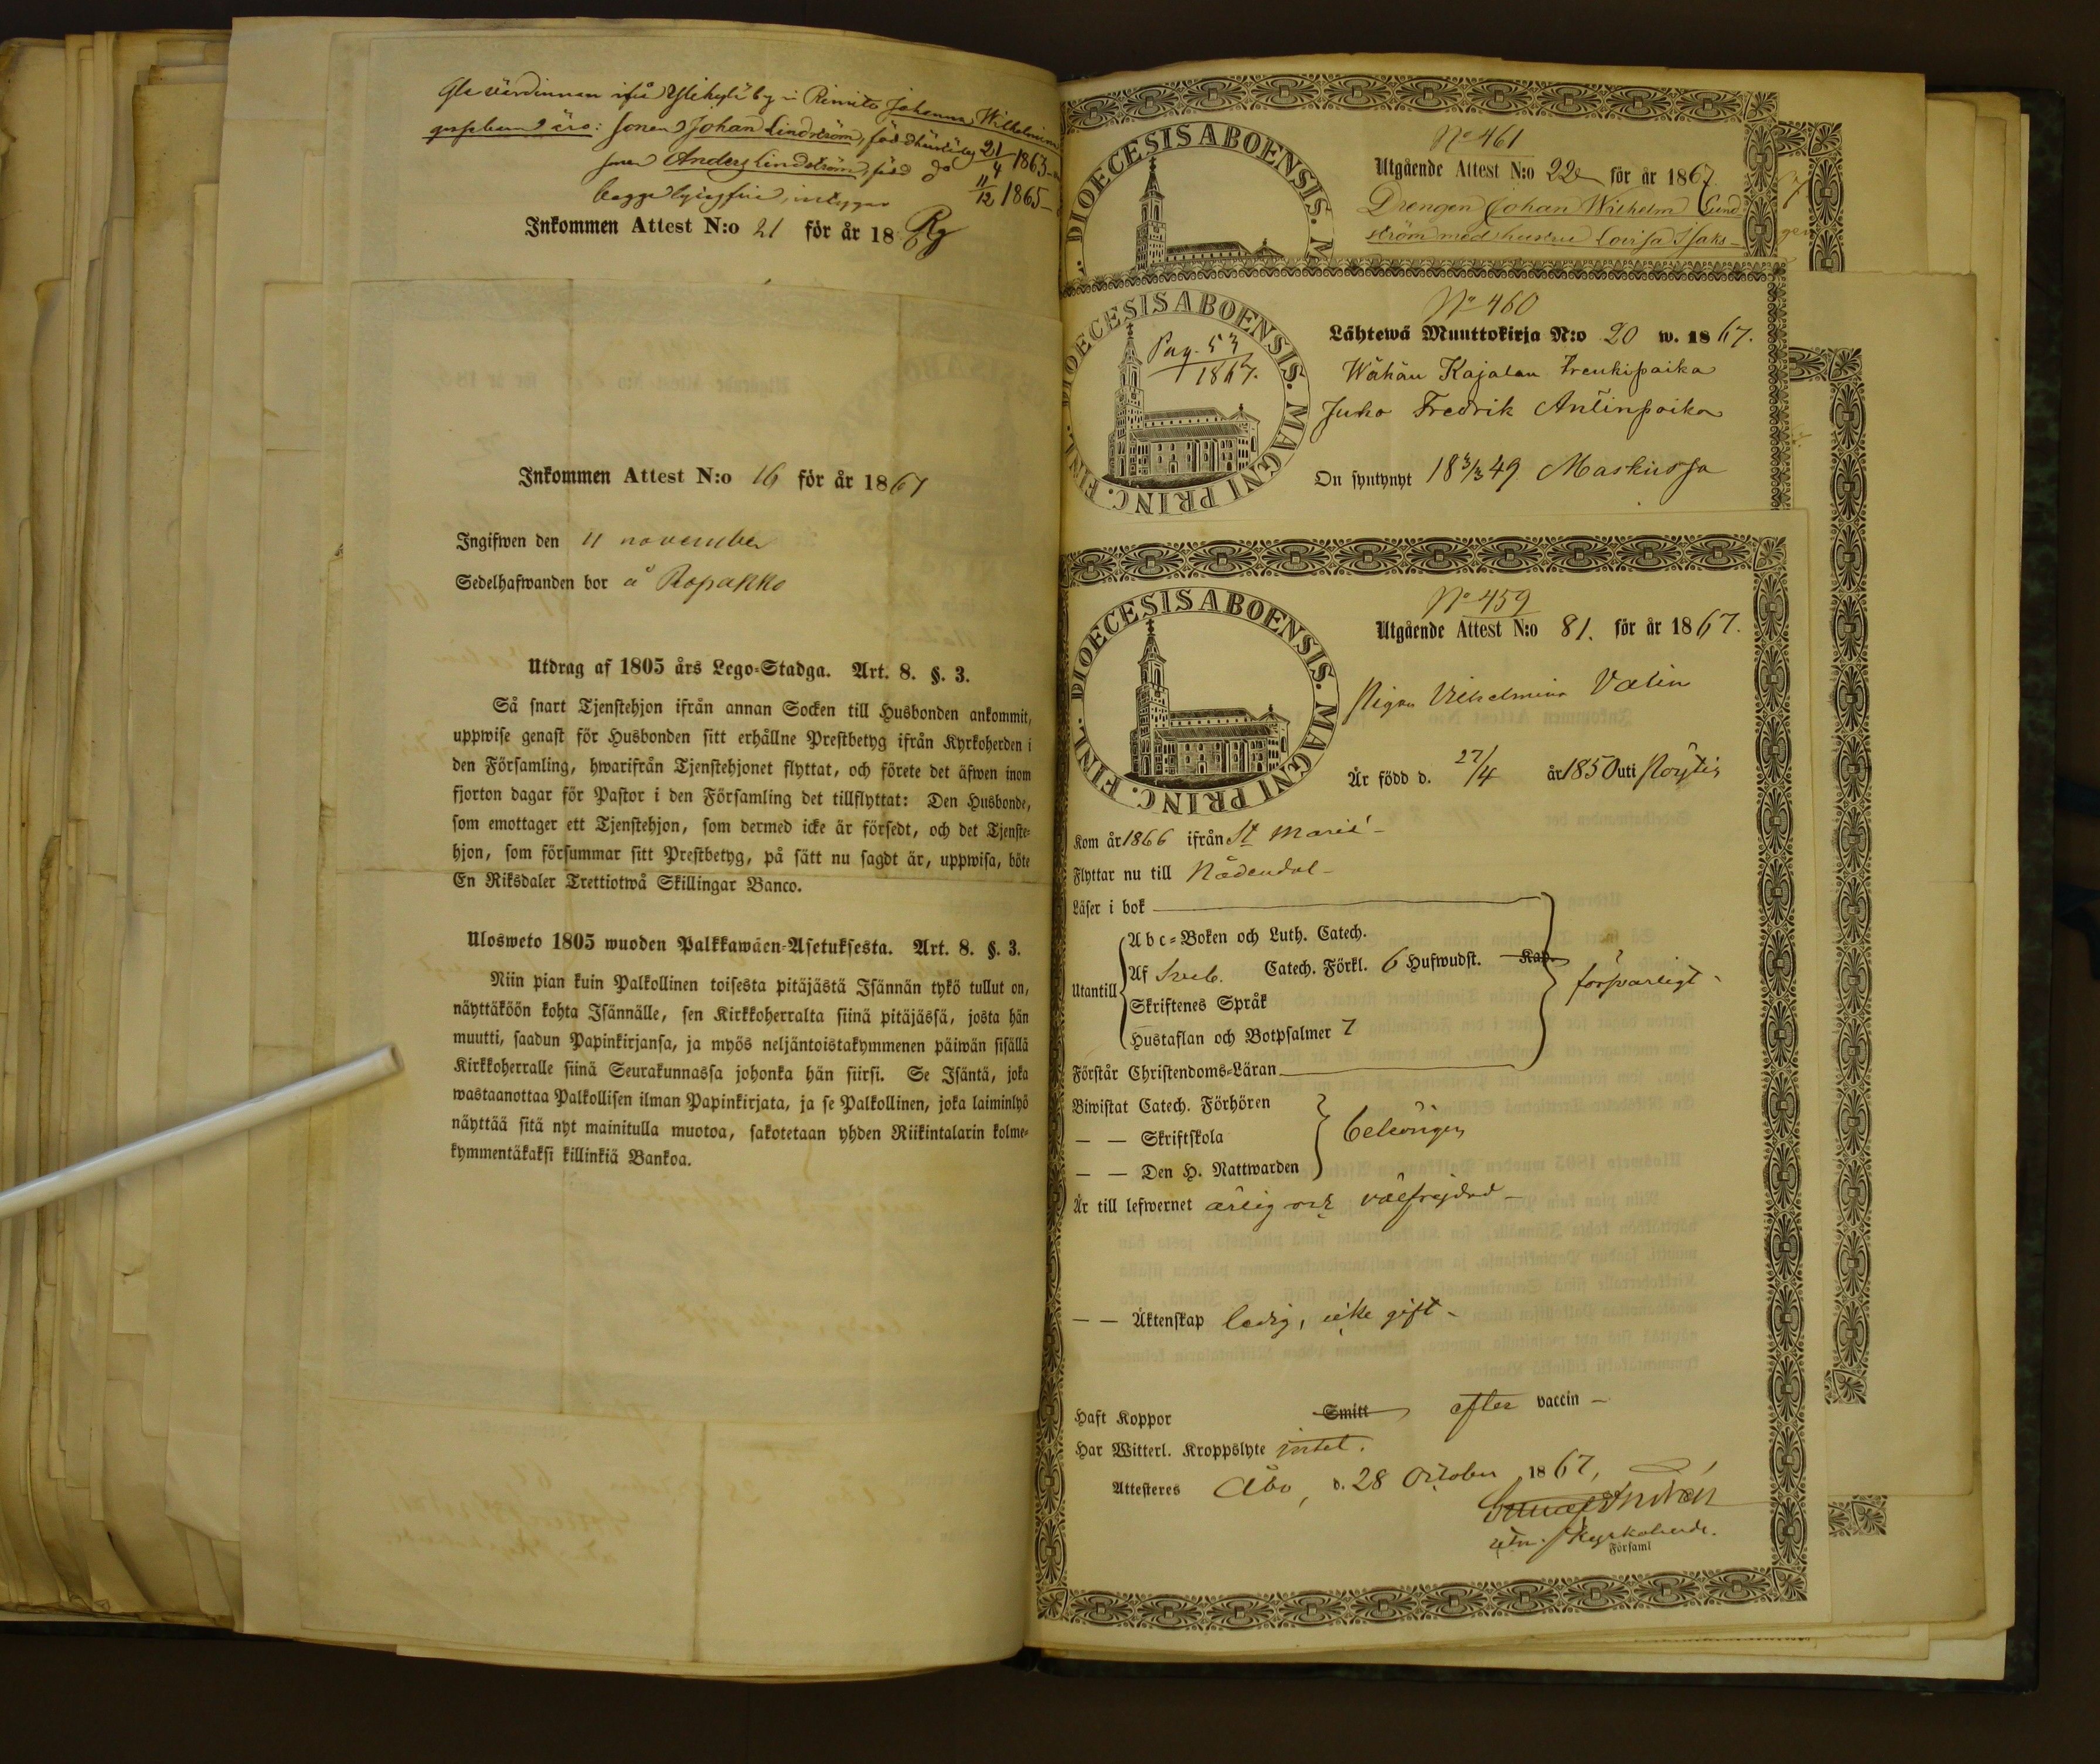 värdinnan ifrån Ylikylä by i Rimito Johanna Wilhelmina
äro: sonen Johan Lindström, född härstädes 21/4 1863
sonen Anders Lindström, född do 11/12 1865
begge
Inkommen Attest N:o 21 för år 18
Inkommen Attest N:o 16 för år 1867
Ingifwen den 11 november
Sedelhafwanden bor å Ropakko
Utdrag af 1805 års Lego-Stadga. Art. 8. §. 3.
Så snart Tjenstehjon ifrån annan Socken till Husbonden ankommit,
uppwise genast för Husbonden sitt erhållne Prestbetyg ifrån Kyrkoherden i
den Församling, hwarifrån Tjenstehjonet flyttat, och förete det äfwen inom
fjorton dagar för Pastor i den Församling det tillflyttat: Den Husbonde,
som emottager ett Tjenstehjon, som dermed icke är försedt, och det Tjenste-
hjon, som försummar sitt Prestbetyg, på sätt nu sagdt är, uppwisa, böte
En Riksdaler Trettiotwå Skillingar Banco.
Ulosweto 1805 wuoden Palkkawäen-Asetuksesta. Art. 8. §. 3.
Niin pian kuin Palkollinen toisesta pitäjästä Isännän tykö tullut on,
näyttäköön kohta Isännälle, sen Kirkkoherralta siinä pitäjässä, josta hän
muutti, saadun Papinkirjansa, ja myös neljäntoistakymmenen päiwän sisällä
Kirkkoherralle siinä Seurakunnassa johonka hän siirsi. Se Isäntä, joka
wastaanottaa Palkollisen ilman Papinkirjata, ja se Palkollinen, joka laiminlyö
näyttää sitä nyt mainitulla muotoa, sakotetaan yhden Riikintalarin kolme-
kymmentäkaksi killinkiä Bankoa.
DIOECESIS ABOENSIS. M
No 461
Utgående Attest N:o 22 för år 1867
Drengen Johan Wilhelm Lind
ström med hustru Lovisa Isaks-
DIOECESIS ABOENSIS. MAGNI PRINC. FINL.
Pag. 53
1867.
No 460
Lähtewä Muuttokirja N:o 20 w. 1867.
Wähän Kajalan trenkipoika
Juho Fredrik Antinpoika
On syntynyt 18 3/3 49 Maskussa
DIOECESIS ABOENSIS. MAGNI PRINC. FINL.
No 459
Utgående Attest N:o 81. för år 1867.
Pigan Vilhelmina Valin
Är född d. 27/4 år 1850 uti Pöytis
Kom år 1866 ifrån St Marië
Flyttar nu till Nådendal
Läser i bok
Utantill
Abc-Boken och Luth. Catech.
Af Sveb. Catech. Förkl. 6 Hufwudst. Kap.
Skriftenes Språk
Hustaflan och Botpsalmer 7
försvarligt
Förstår Christendoms-Läran
Biwistat Catech. Förhören
— — Skriftskola
— — Den H. Nattwarden
behörigen
Är till lefwernet ärlig och välfrejdad
— — Äktenskap ledig, icke gift
Haft Koppor Smitt efter vaccin
Har Witterl. Kroppslyte intet.
Attesteres Åbo, d. 28 October 1867,
Kyrkoherde.
Församl